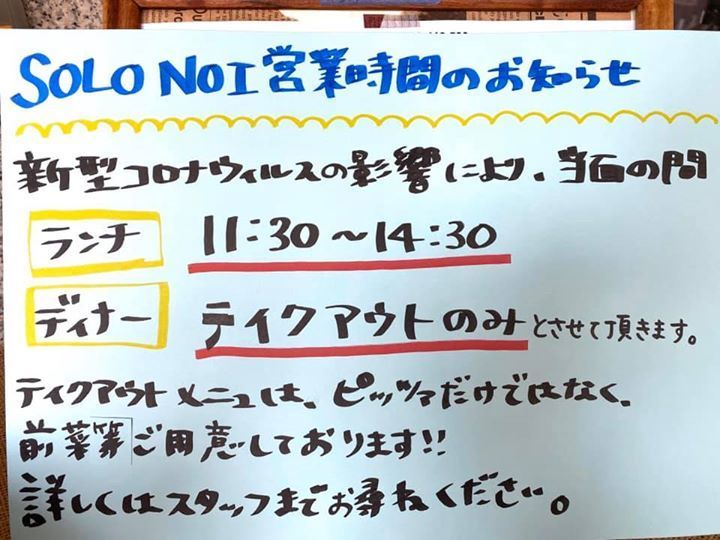 SOLO NOI 営業時間のお知らせ
新型コロナウィルスの影響により、当面の間
ランチ 11:30～14:30
ディナー テイクアウトのみとさせて頂きます。
テイクアウトメニュは、ピッツァだけではなく、
前菜等ご用意しております!!
詳しくはスタッフまでお尋ねください。